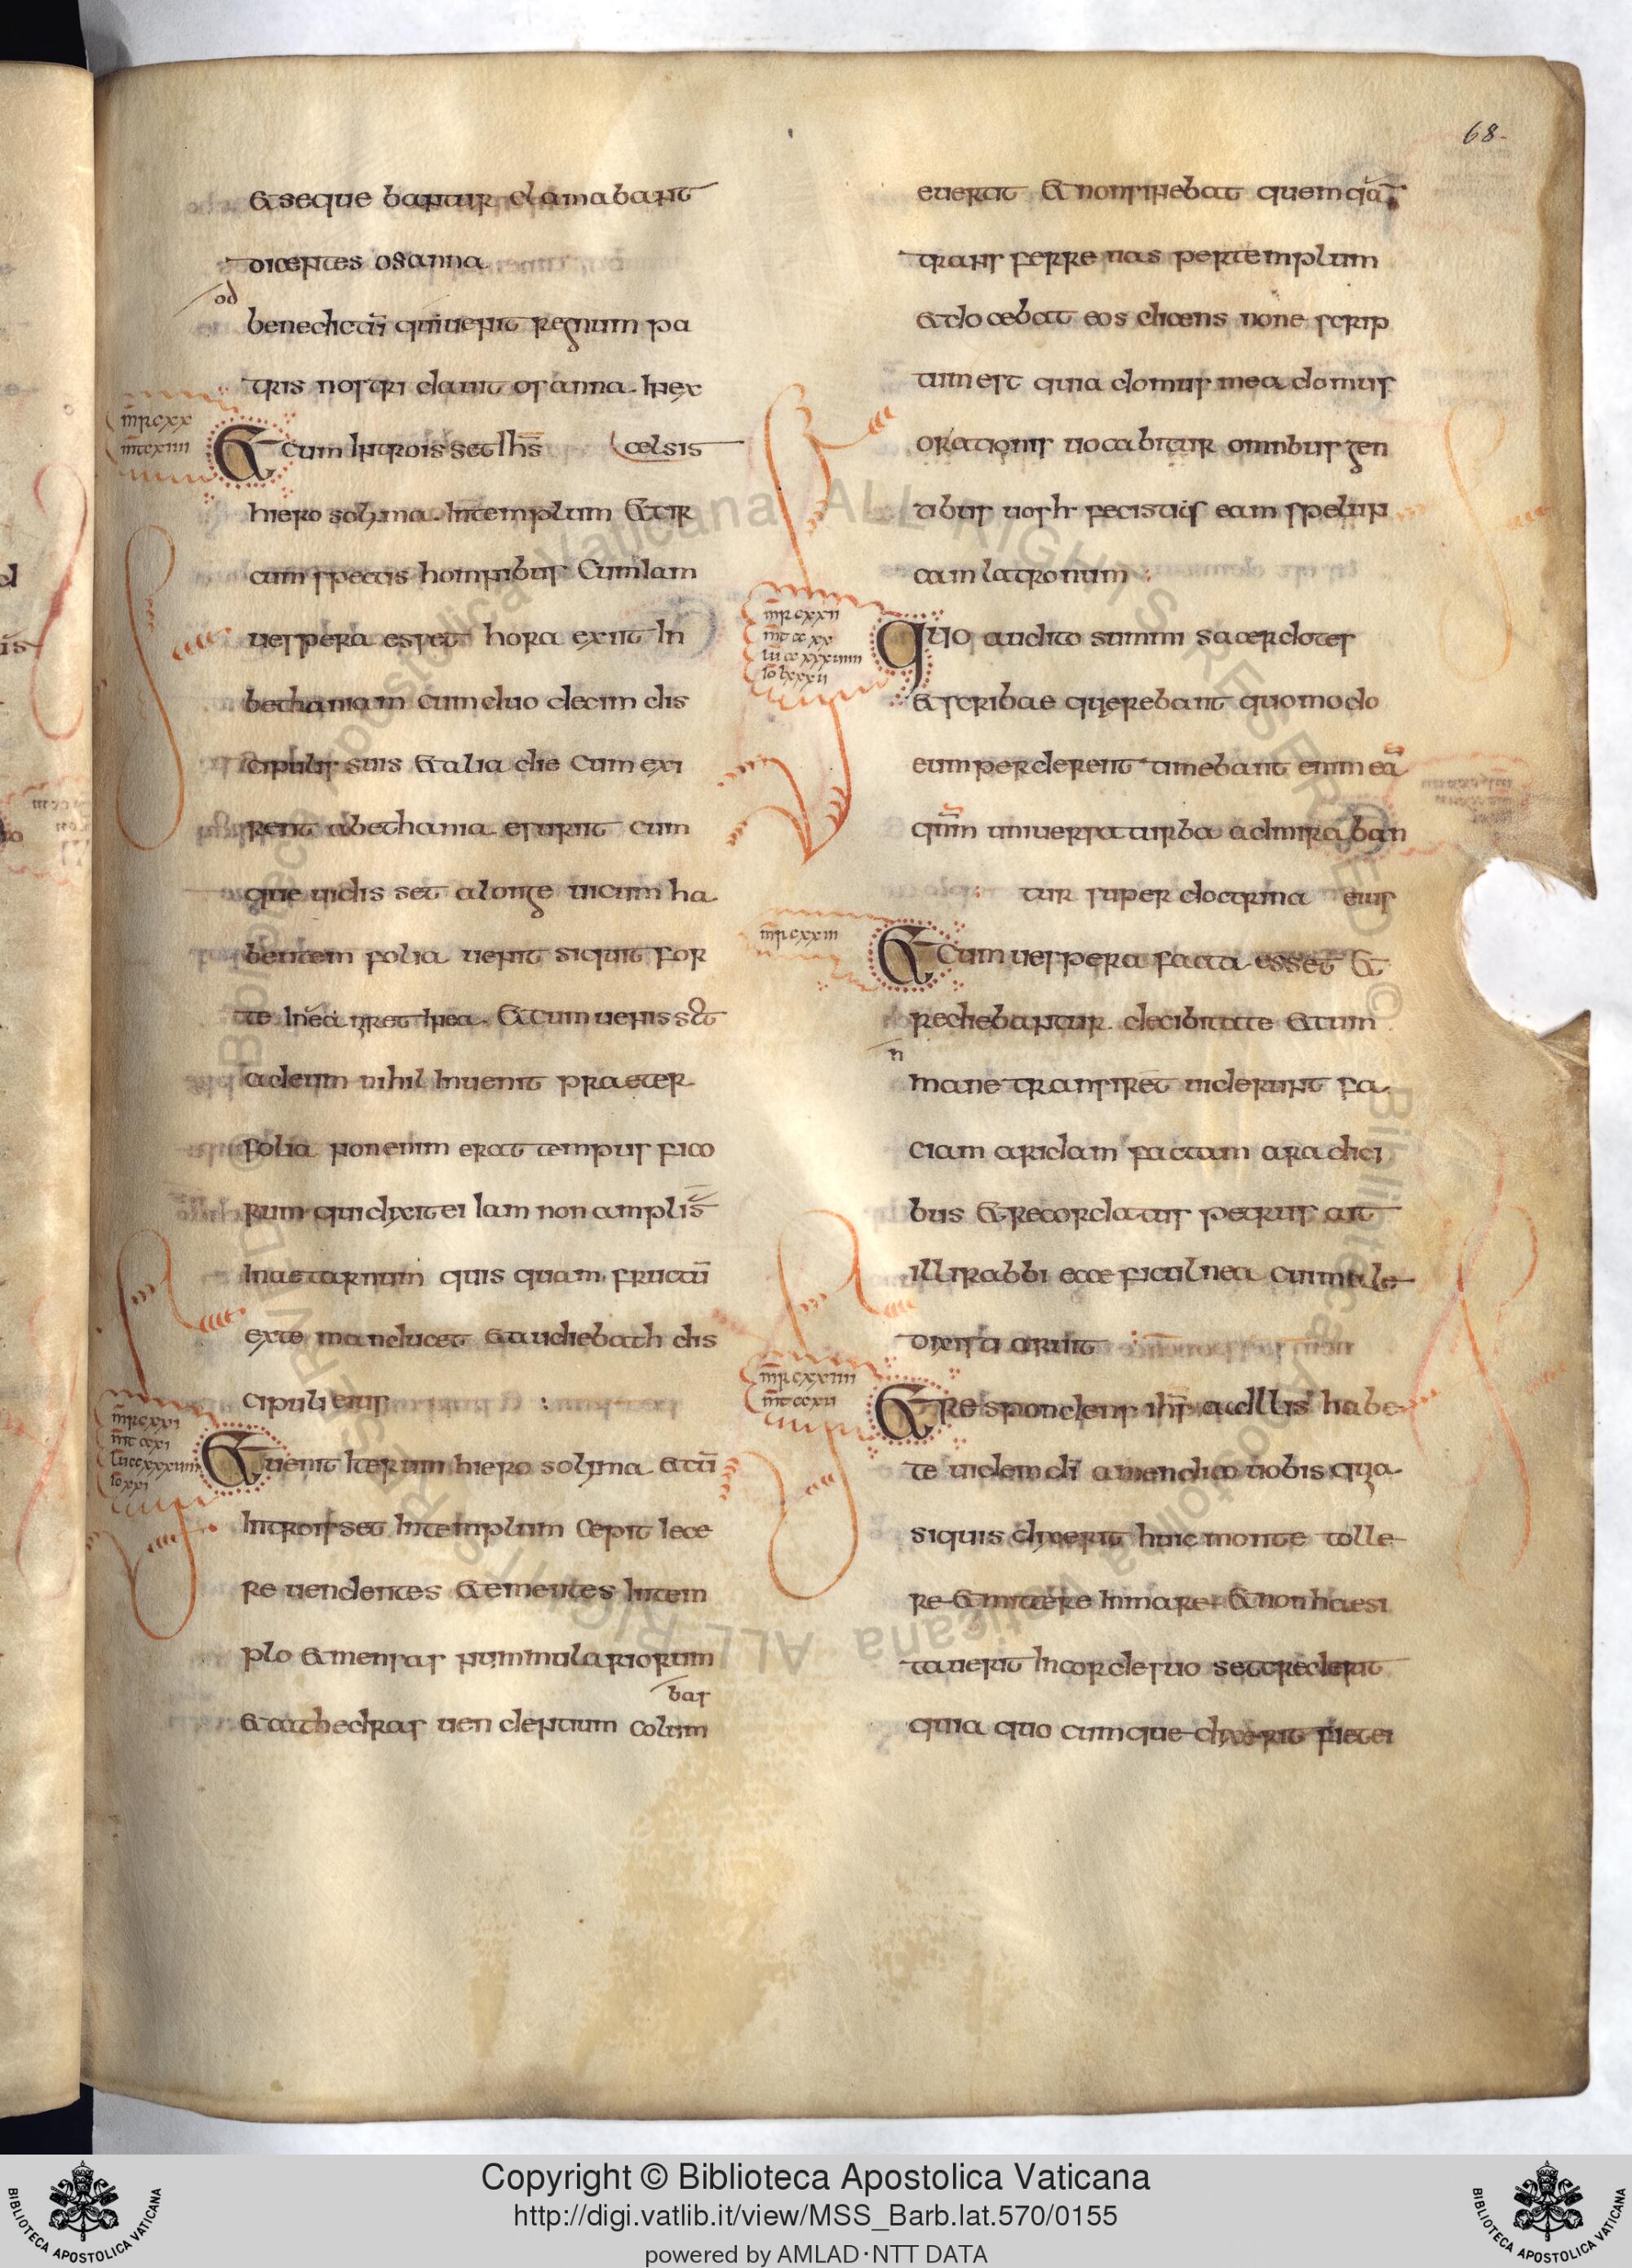 68.
& sequebantur clamabant
dicentes osanna
od
benedictū qui uenit regnum pa
tris nostri dauit osanna. Inex
mr cxx
mt cxiiii
& cum Introisset Ihs̄ celsis
hierosolyma. Intemplum & cir
cum spectis hominibus Cum Iam
uespera esset hora exiit In
bethaniam cum duodecim dis
cipulis suis & alia die Cum exi
rent abethania esuriit cum
que uidisset alonge uicum ha
bentem folia uenit siquit for
te Inea. & cum uenis
adeum nihil Inuenit praeter
folia non enim erat tempus fico
rum qui dixit ei Iam non amplis̄
Inaetarnum quis quam fructū
exte manducet & audiebath dis
cipuli eius :
mr cxxi
mt ccxi
lu ccxxxuiii
io xxi
& uenit Iterum hierosolyma & cū
Introisset Intemplum Cepit Iece
re uendentes & ementes Intem
plo & mensas nummulariorum
bas
& cathedras uendentium colum
euerat & non sinebat quemquā
transferre uas per templum
& docebat eos dicens none scrip
tum est quia domus mea domus
orationis uocabitur omnibus gen
tibus uosh fecistis eam spelun
cam latronum :
mr cxxii
mt ccxx
lu ccxxxuiiii
io lxxxii
Quo audito summi sacerdotes
& scribae querebant quomodo
eum perderent timebant enim eā
qnm uniuersa turba admiraban
tur super doctrina eius
mr cxxiii
& Cum uespera facta esset &
rediebantur decibitate & cum
n
mane transiret uiderunt fa
ciam aridam factam aradici
bus & recordatus petrus ait
illi rabbi ecce ficulnea cui male
dixisti aruit :
mr cxxiiii
mt ccxu
& Respondens ihs̄ ad Illis habe
te uidem dī amen dico uobis qua
siquis dixerit huic monte tolle
re & mittere Inmare & non haesi
tauerit In corde suo set crederit
quia quo cumque dixerit fiet ei
Copyright © Biblioteca Apostolica Vaticana
http://digi.vatlib.it/view/MSS_Barb.lat.570/0155
powered by AMLAD·NTT DATA
BIBLIOTECA APOSTOLICA VATICANA
BIBLIOTECA APOSTOLICA VATICANA